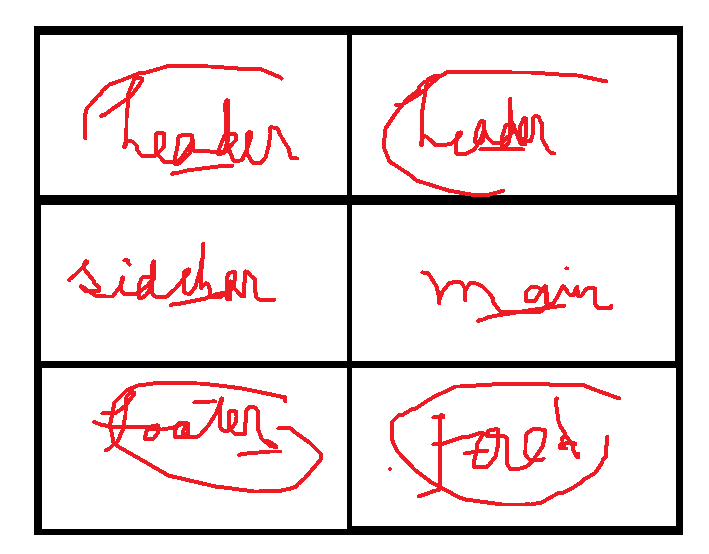 header header
sidebar main
footer